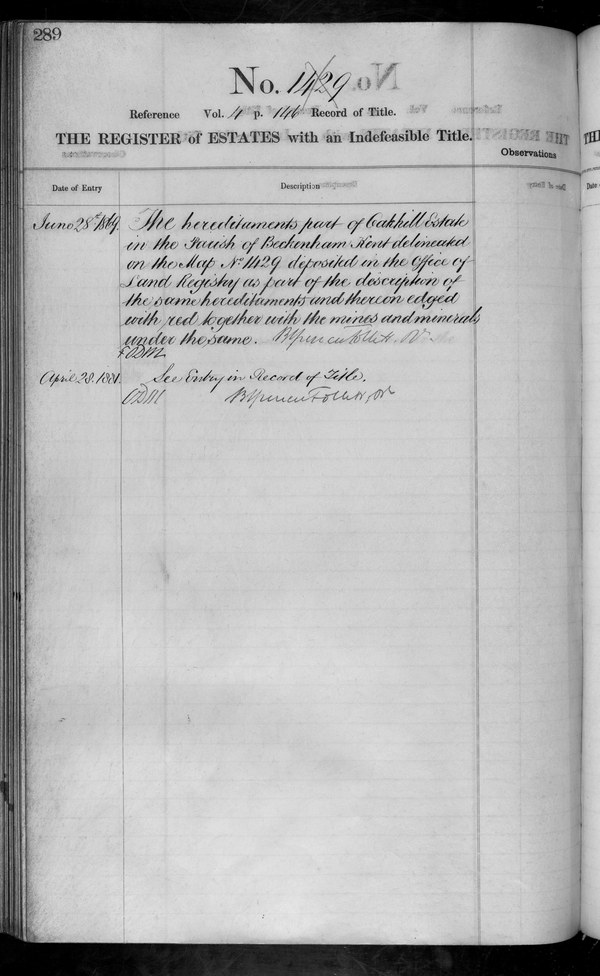 289
No. 1429
Reference Vol. 4 p. 146 Record of Title.
THE REGISTER of ESTATES with an Indefeasible Title.
Observations
Date of Entry
Description
June 28th 1869.
The hereditaments part of Oakhill Estate
in the Parish of Beckenham Kent delineated
on the Map No. 1429 deposited in the Office of
Land Registry as part of the description of
the same hereditaments and thereon edged
with red together with the mines and minerals
under the same.
April 28. 1881.
See Entry in Record of Title.